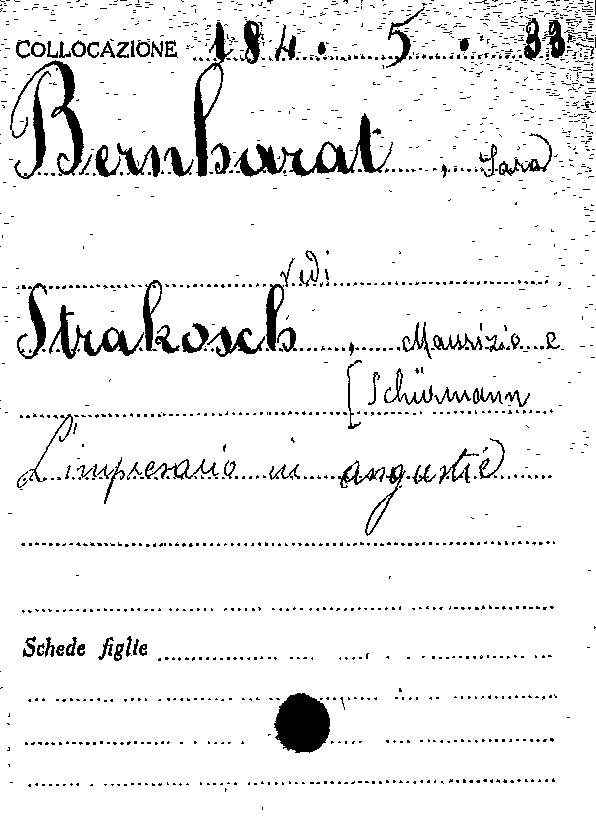 COLLOCAZIONE 184. 5. 33
Bernharat, Sara
vedi
Strakosch, Maurizio e
[Schürmann
L'impresario in angustie
Schede figlie